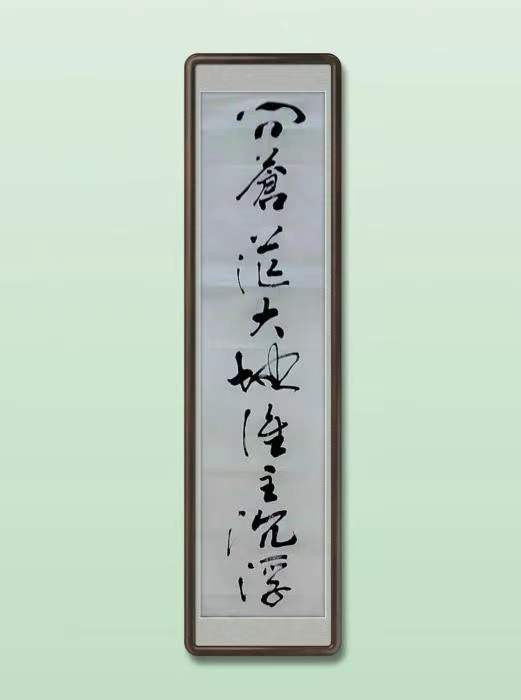 问苍茫大地谁主沉浮